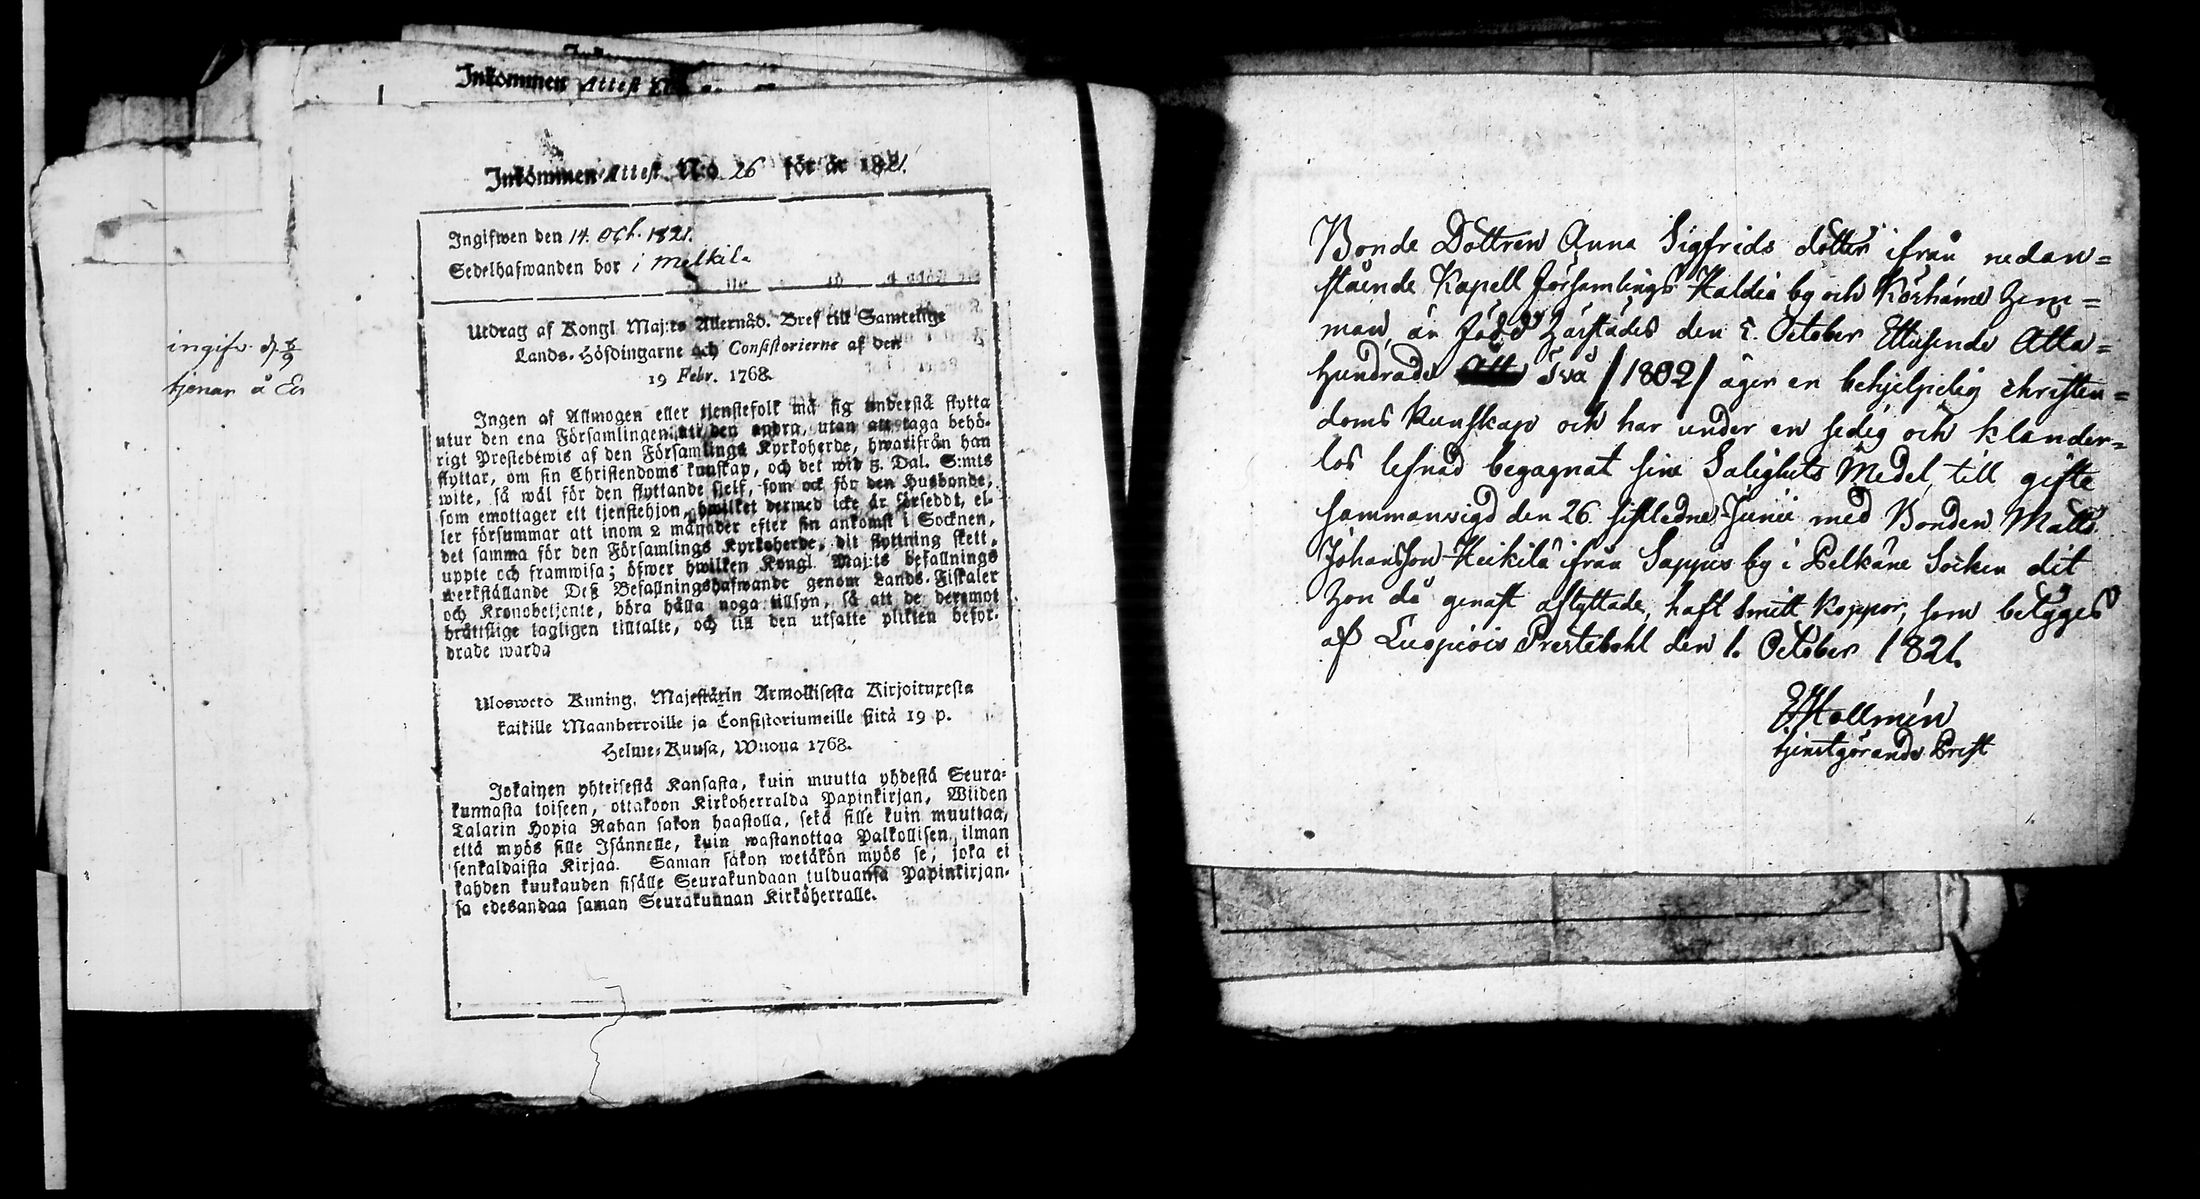 Inkommen Attest
ingifv. d.
tjenar å
Inkommen Attest. N:o 26 för år 1821.
Ingifwen den 14. Oct. 1821.
Sedelhafwanden bor i Mälkilä
Utdrag af Kongl Maj:ts Allernåd. Bref till Samtelige
Lands-Höfdingarne och Consistorierne af den
19 Febr. 1768.
Ingen af Allmogen eller tjenstefolk må sig understå flytta
utur den ena Församlingen uti den andra, utan att taga behö-
rigt Prestebewis af den Församlings Kyrkoherde, hwarifrån han
flyttar, om sin Christendoms kunskap, och det wid 5. Dal. S:mts
wite, så wäl för den flyttande sjelf, som ock för den Husbonde,
som emottager ett tjenstehjon, hwilket dermed icke är försedt, el-
ler försummar att inom 2 månader efter sin ankomst i Socknen,
det samma för den Församlings Kyrkoherde, dit flyttning skett,
uppte och framwisa; öfwer hwilken Kongl Maj:ts befallnings
werkställande Deß Befallningshafwande genom Lands-Fiskaler
och Kronobetjente, böra hålla noga tillsyn, så att de deremot
bråttslige lagligen tilltalte, och till den utsatte plikten befor-
drade warda
Ulosweto Kuning. Majestätin Armollisesta Kirjoituxesta
kaikille Maanherroille ja Consistoriumeille siitä 19 p.
Helme-Kuusa, Wuona 1768.
Jokainen yhteisestä Kansasta, kuin muutta yhdestä Seura-
kunnasta toiseen, ottakoon Kirkoherralda Papinkirjan, Wiiden
Talarin Hopia Rahan sakon haastolla, sekä sille kuin muuttaa,
että myös sille Isännelle, kuin wastanottaa Palkollisen ilman
senkaldaista Kirjaa. Saman sakon wetäkön myös se, joka ei
kahden kuukauden sisälle Seurakundaan tulduansa Papinkirjan-
sa edesandaa saman Seurakunnan Kirköherralle.
Bonde Dottren Anna Sigfrids dotter ifrån nedan=
stående Kapell Församlings Haldia by och Hem=
man, är född härstädes den 5. October Ettusende Åtta=
hundrade Två /1802/ äger en behjelpelig christen=
doms kunskap och har under en sedig och klander=
lös lefnad begagnat sine Salighets Medel, till gifte
sammanvigd den 26 sistledne Junii med Bonden Matts
Johansson Heikilä ifrån Sappus by i Pelkäne Socken dit
hon då genast aflyttade, haft Smitt koppor, som betyges
af Luopiois Prestebohl den 1. October 1821.
Hollmén
tjenstgörande Prest